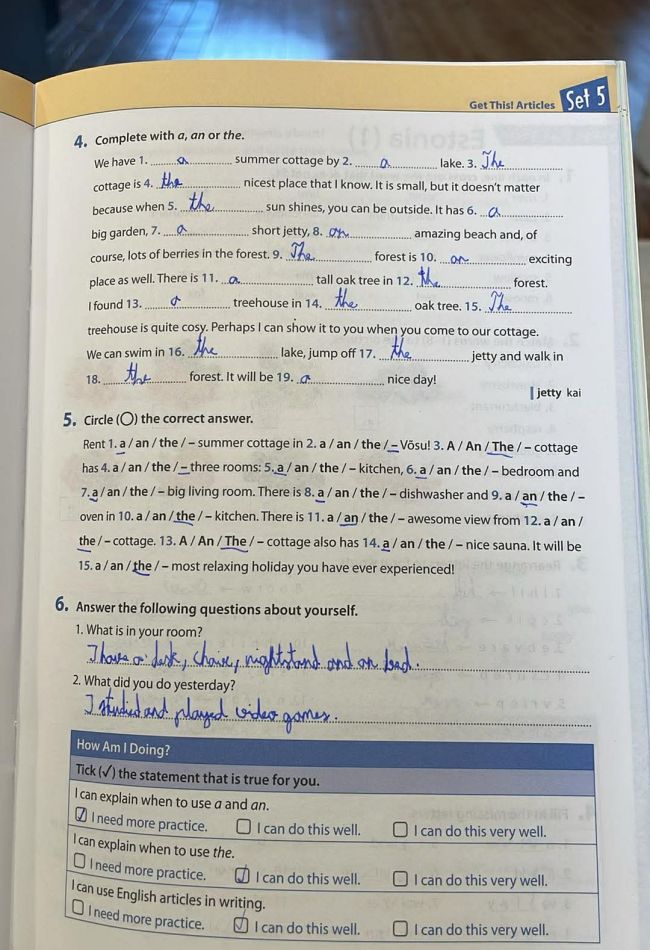 Get This! Articles Set 5
4. Complete with a, an or the.
We have 1. a summer cottage by 2. a lake. 3. The
cottage is 4. the nicest place that I know. It is small, but it doesn't matter
because when 5. the sun shines, you can be outside. It has 6. a
big garden, 7. a short jetty, 8. an amazing beach and, of
course, lots of berries in the forest. 9. The forest is 10. an exciting
place as well. There is 11. a tall oak tree in 12. the forest.
I found 13. a treehouse in 14. the oak tree. 15. The
treehouse is quite cosy. Perhaps I can show it to you when you come to our cottage.
We can swim in 16. the lake, jump off 17. the jetty and walk in
18. the forest. It will be 19. a nice day!
jetty kai
5. Circle (O) the correct answer.
Rent 1. a / an / the / – summer cottage in 2. a / an / the / – Võsu! 3. A / An / The / – cottage
has 4. a / an / the / – three rooms: 5. a / an / the / – kitchen, 6. a / an / the / – bedroom and
7. a / an / the / – big living room. There is 8. a / an / the / – dishwasher and 9. a / an / the / –
oven in 10. a / an / the / – kitchen. There is 11. a / an / the / – awesome view from 12. a / an /
the / – cottage. 13. A / An / The / – cottage also has 14. a / an / the / – nice sauna. It will be
15. a / an / the / – most relaxing holiday you have ever experienced!
6. Answer the following questions about yourself.
1. What is in your room?
I have a desk, chaire, nightstand and an bed.
2. What did you do yesterday?
I studied and played video games.
How Am I Doing?
Tick (✓) the statement that is true for you.
I can explain when to use a and an.
☑ I need more practice. ☐ I can do this well. ☐ I can do this very well.
I can explain when to use the.
☐ I need more practice. ☑ I can do this well. ☐ I can do this very well.
I can use English articles in writing.
☐ I need more practice. ☑ I can do this well. ☐ I can do this very well.